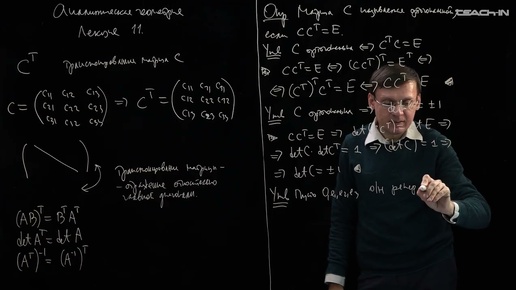 Аналитическая геометрия
Лекция 11.
C^T транспонирование матрица C
C = (c11 c12 c13; c21 c22 c23; c31 c32 c33) => C^T = (c11 c21 c31; c12 c22 c32; c13 c23 c33)
Транспонирование матрицы –
– отражение относительно
главной диагонали.
(AB)^T = B^T A^T
det A^T = det A
(A^T)^{-1} = (A^{-1})^T
Опр Матрица C называется ортогональной,
если CC^T = E.
Утв C ортогональна <=> C^T C = E
CC^T = E <=> (CC^T)^T = E^T <=>
<=> (C^T)^T C^T = E <=> CC^T = E
Утв C ортогональна = ±1
CC^T = E => det(C E =>
=> det C · det C^T = 1 => (det C) = 1 =>
=> det C = ±1
Утв Пусть O e1, e2, e3 о/н репер
TEACH-IN